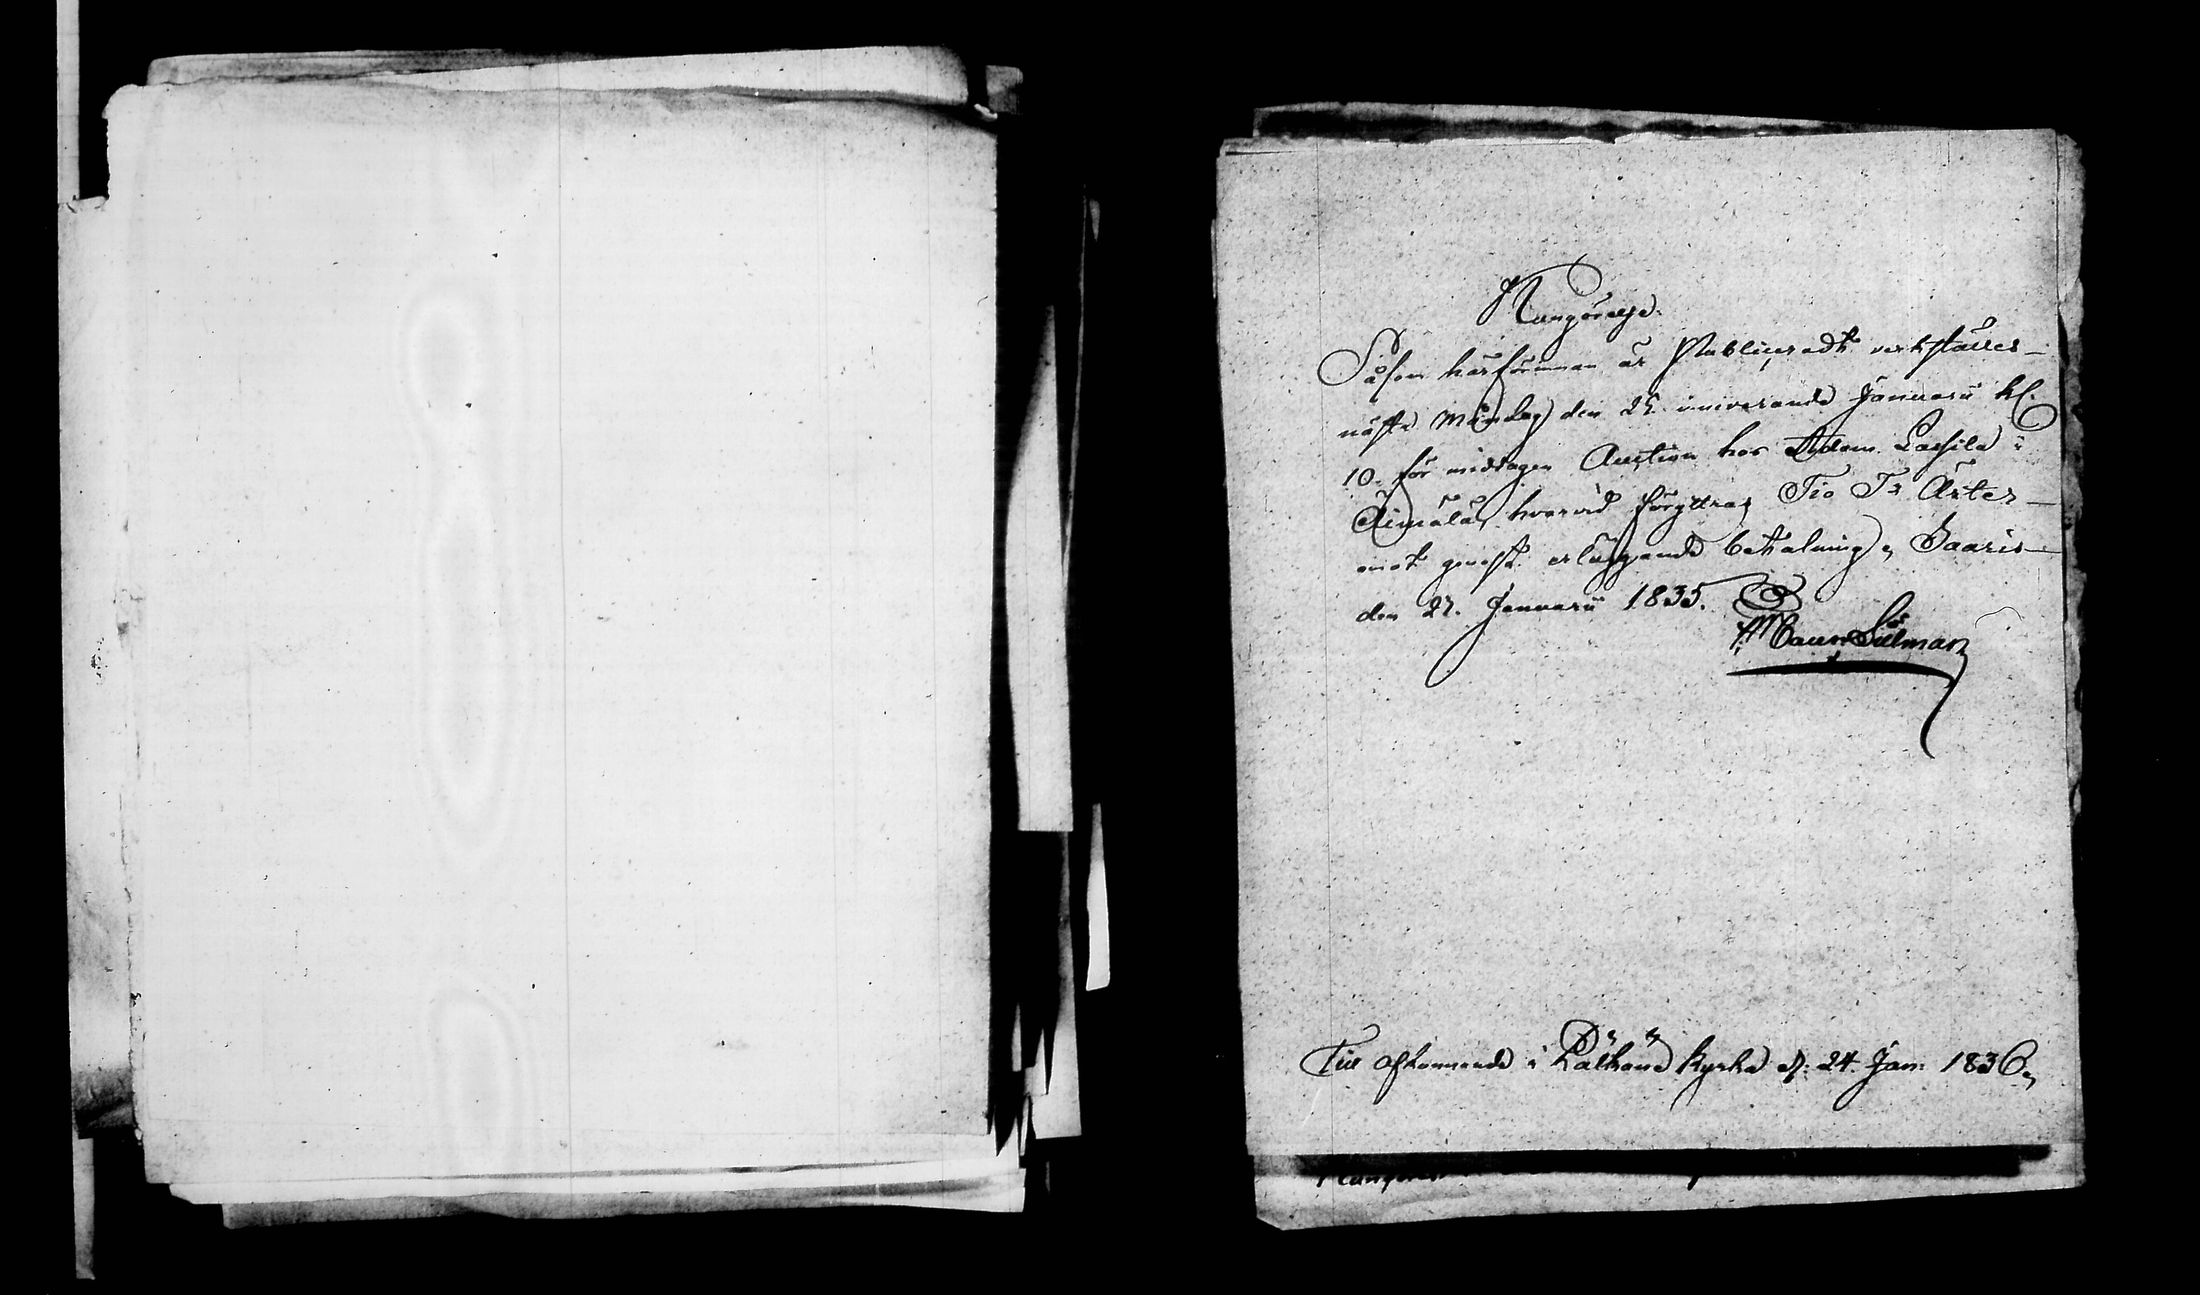 Kungörelse.
Såsom härförinnan är Publiceradt verkställes
nästa Måndag den 25 innevarande Januarii kl.
10. för middagen Auction hos Adam Lassila i
Aimälä, hvarvid föryttras Tio Tr Ärter
mot genast erläggande betalning, Saaris
den 21. Januarii 1835.
Sillman
Till afkunnande i Pälkäne Kyrka d: 24. Jan: 1836,